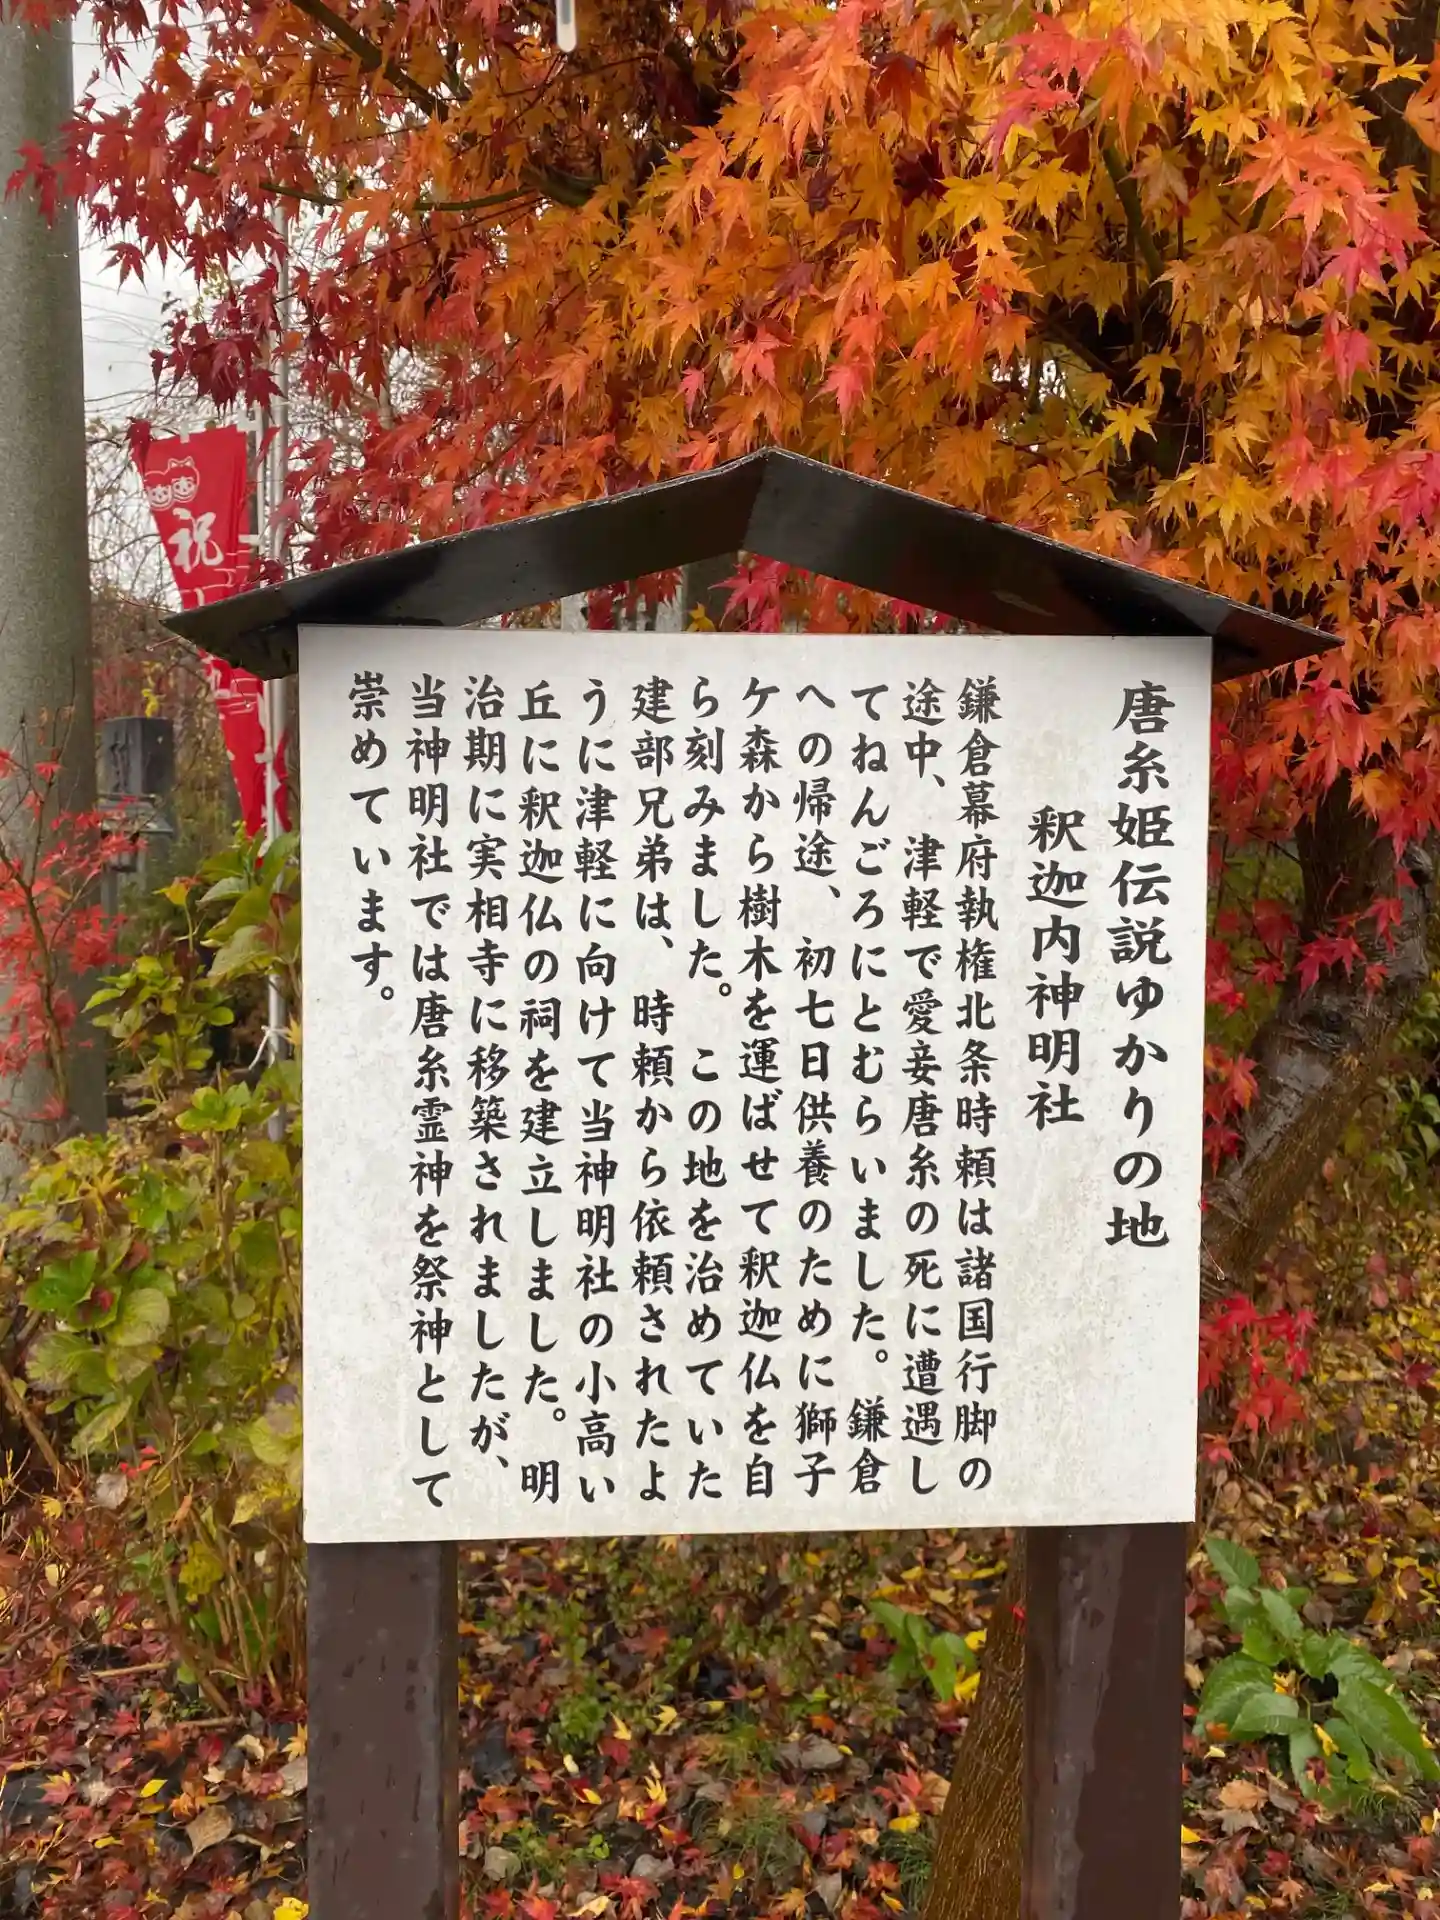 唐糸姫伝説ゆかりの地
釈迦内神明社
鎌倉幕府執権北条時頼は諸国行脚の
途中、津軽で愛妾唐糸の死に遭遇し
てねんごろにとむらいました。鎌倉
への帰途、初七日供養のために獅子
ケ森から樹木を運ばせて釈迦仏を自
ら刻みました。この地を治めていた
建部兄弟は、時頼から依頼されたよ
うに津軽に向けて当神明社の小高い
丘に釈迦仏の祠を建立しました。明
治期に実相寺に移築されましたが、
当神明社では唐糸霊神を祭神として
崇めています。
祝